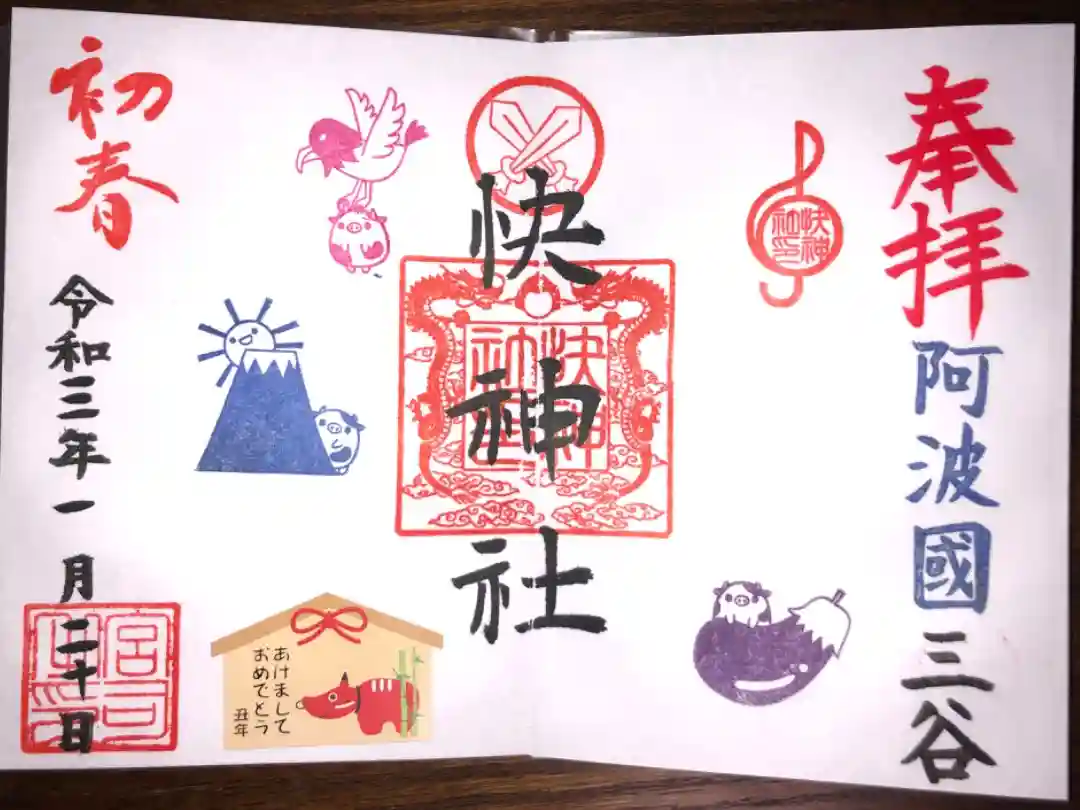 奉拝
阿波國三谷
快神社印
快神社
快神社
初春
令和三年一月二十日
宮司
あけまして
おめでとう
丑年